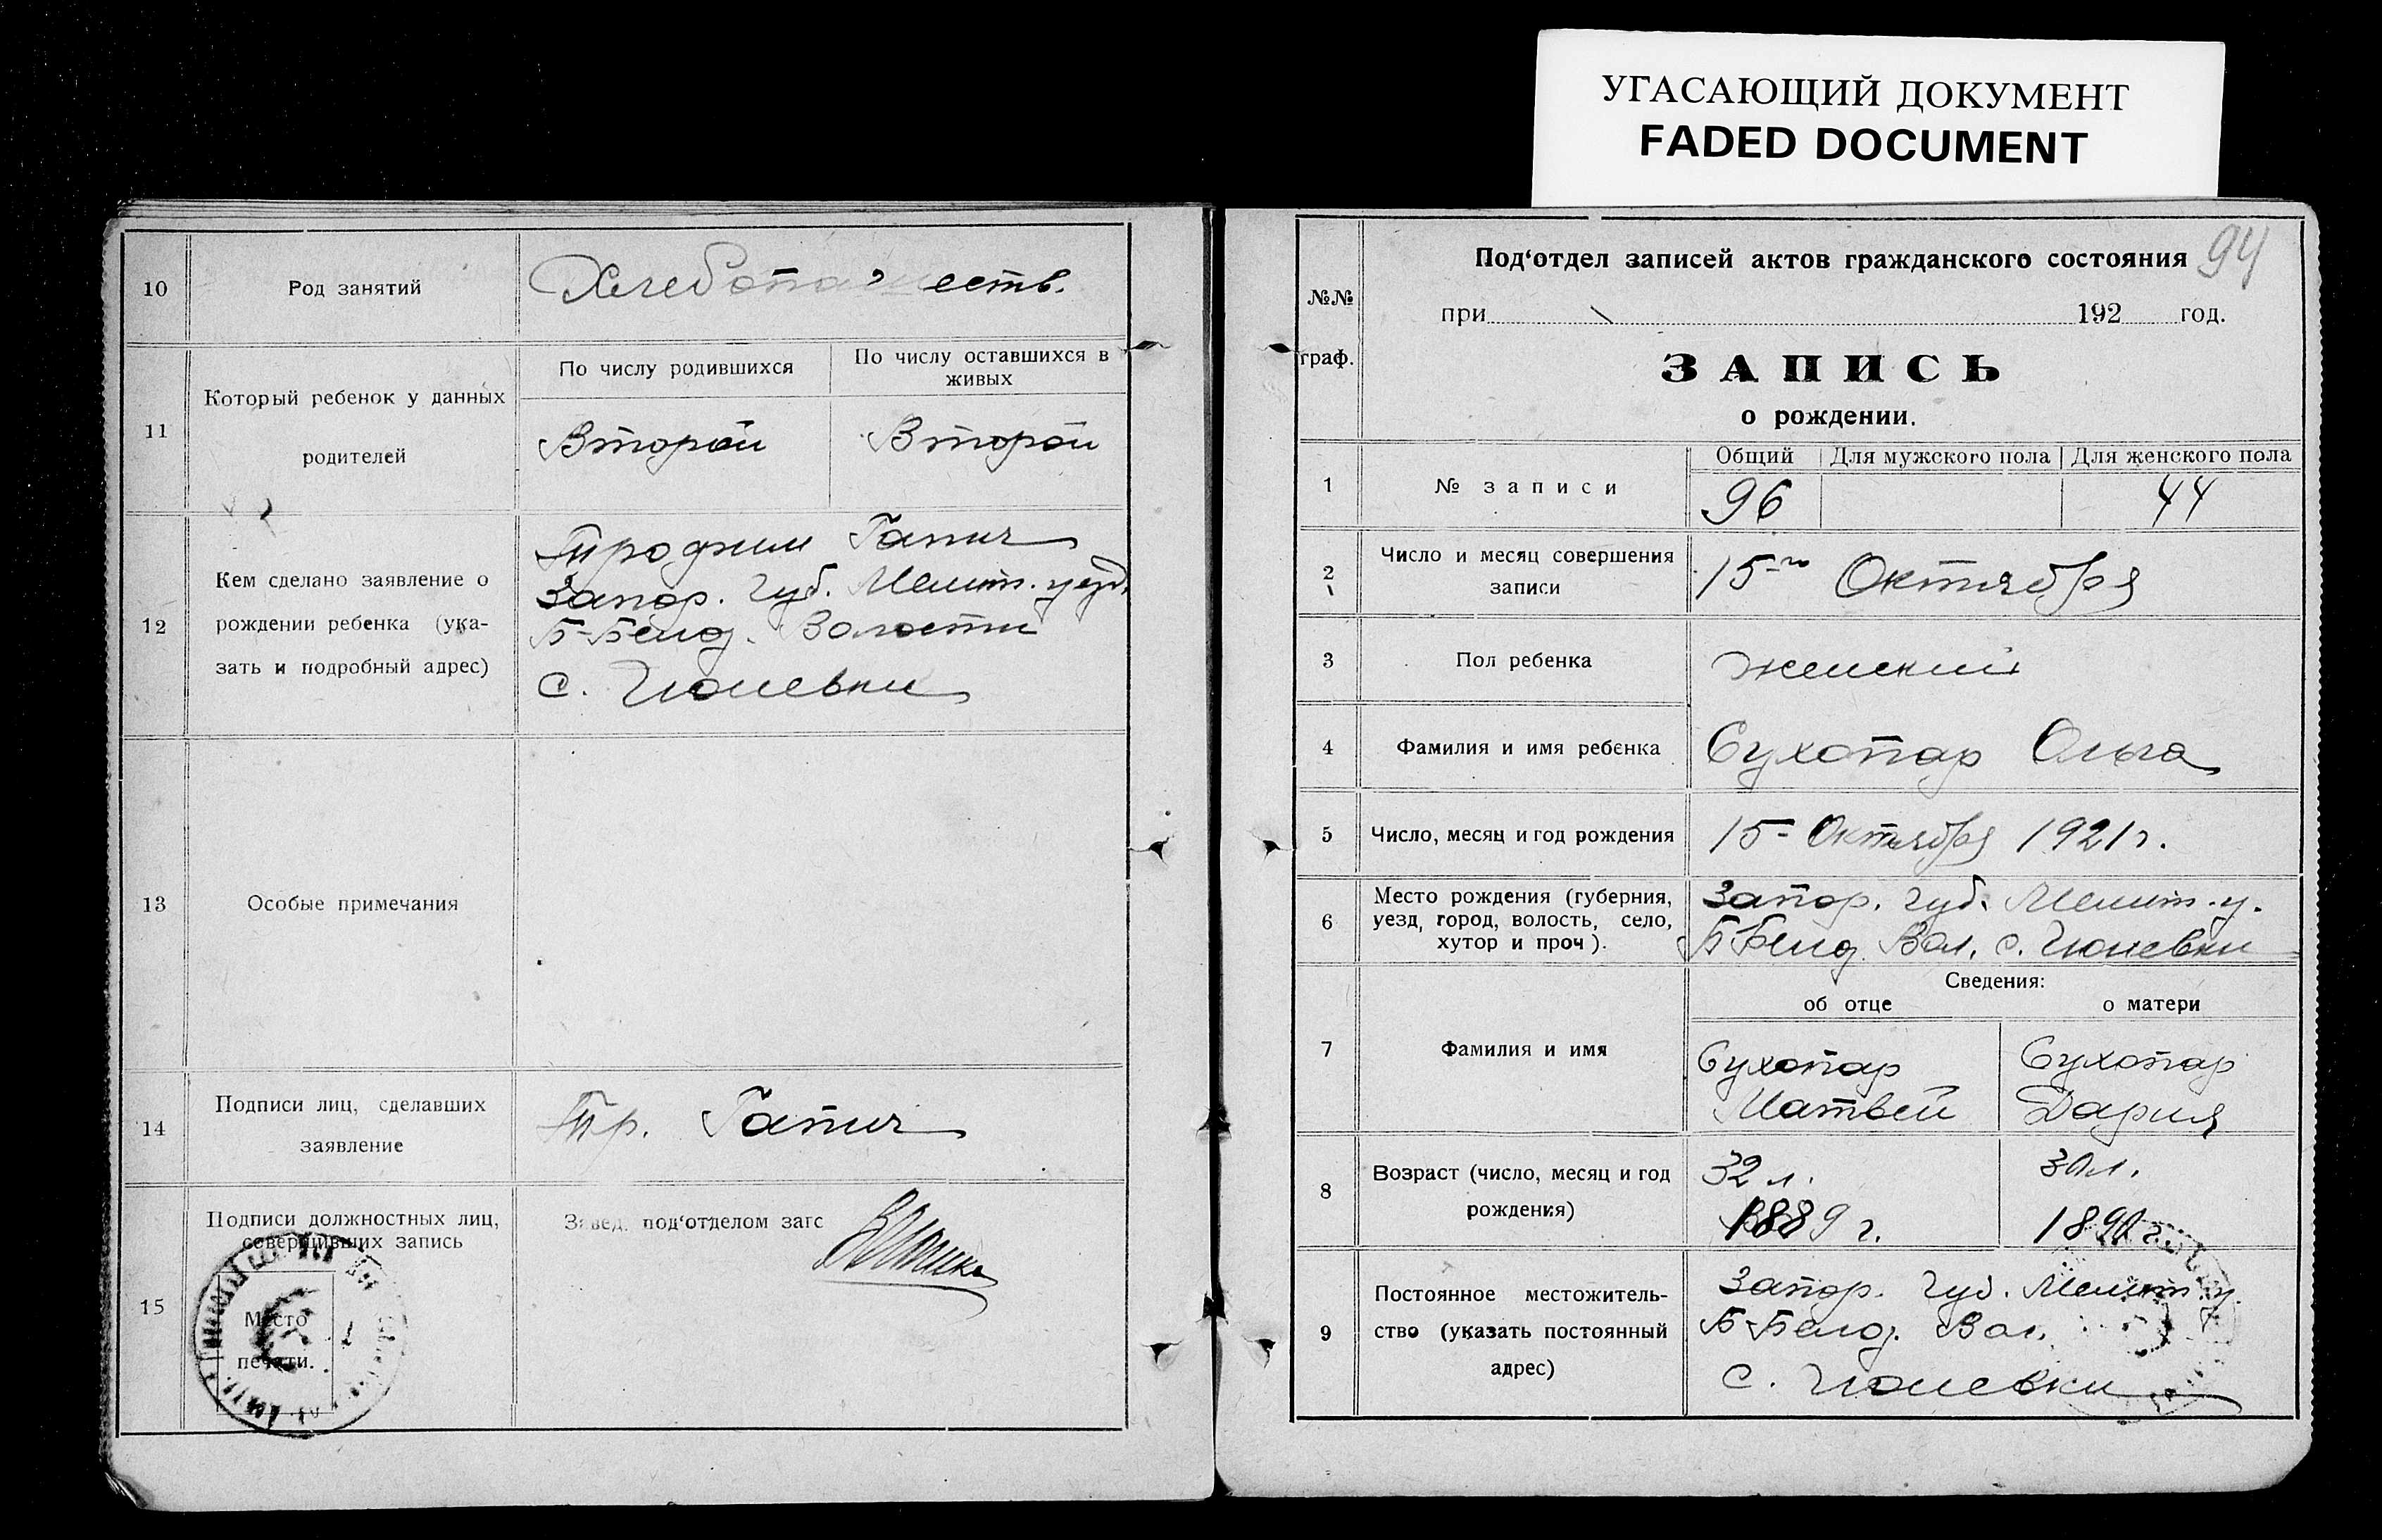 УГАСАЮЩИЙ ДОКУМЕНТ
FADED DOCUMENT
10
Род занятий
Хлебопашеств.
11
Который ребенок у данных
родителей
По числу родившихся
По числу оставшихся в
живых
Второй
Второй
12
Кем сделано заявление о
рождении ребенка (ука-
зать и подробный адрес)
Гапич
Запор. Губ. Мелит. уезд.
Б-Белоз. Волости
с.
13
Особые примечания
14
Подписи лиц, сделавших
заявление
Тр. Гапич
15
Подписи должностных лиц,
совершивших запись
Место
печати.
Завед. под‘отделом загс
94
№№
граф.
Под‘отдел записей актов гражданского состояния
при 192 год.
ЗАПИСЬ
о рождении.
1
№ записи
Общий
Для мужского пола
Для женского пола
96
44
2
Число и месяц совершения
записи
15-го Октября
3
Пол ребенка
женский
4
Фамилия и имя ребенка
Сухопар Ольга
5
Число, месяц и год рождения
15- Октября 1921г.
6
Место рождения (губерния,
уезд, город, волость, село,
хутор и проч).
Запор. Губ. Мелит. у.
Б Белоз. Вол. с.
Сведения:
об отце
о матери
7
Фамилия и имя
Сухопар
Матвей
Сухопар
Дария
8
Возраст (число, месяц и год
рождения)
32 л.
1889 г.
30 л.
189 г.
9
Постоянное местожитель-
ство (указать постоянный
адрес)
Запор. Губ. Мелит у.
Б-Белоз. Вол.
с.